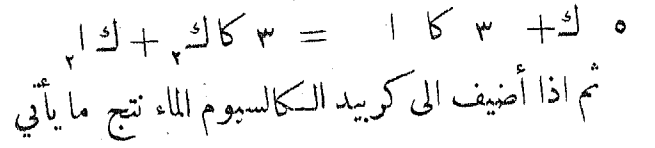 ٥ ك + ٣ كا ا = ٣ كاك٢ + ك ا٢
ثم اذا أضيف الى كربيد الـكالسيوم الماء نتج ما يأتي